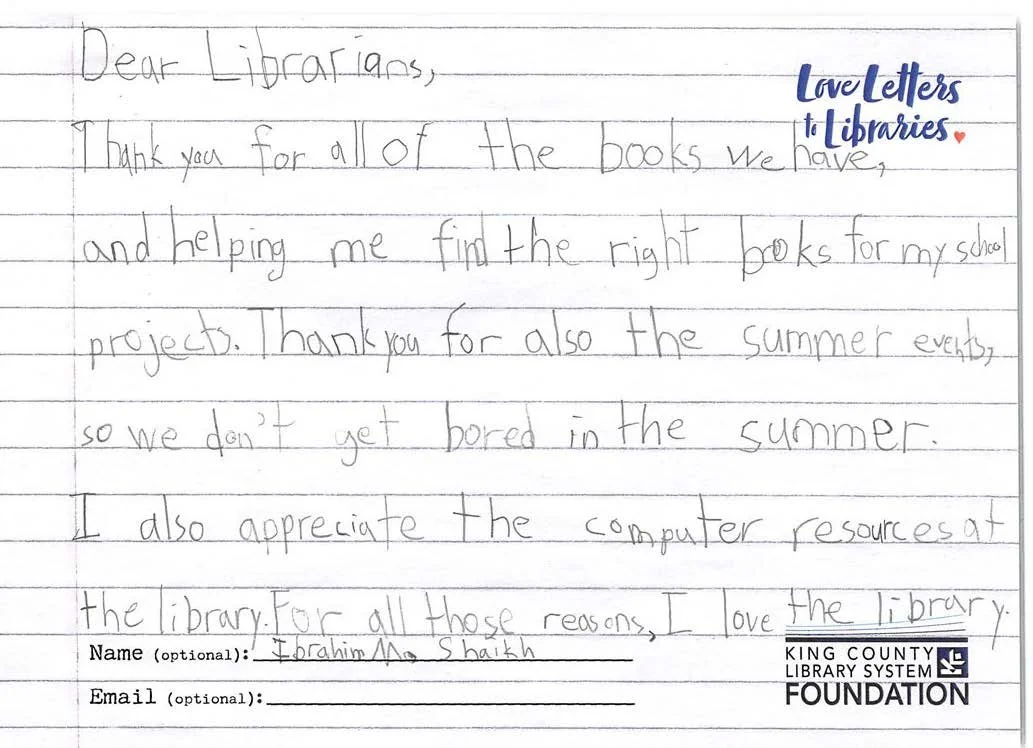 Dear Librarians,
Love Letters
to Libraries.
Thank you for all of the books we have,
and helping me find the right books for my school
projects. Thank you for also the summer events,
so we don't get bored in the summer.
I also appreciate the computer resources at
the library. For all those reasons, I love the library.
Name (optional): Ibrahim M. Shaikh
Email (optional):
KING COUNTY
LIBRARY SYSTEM
FOUNDATION